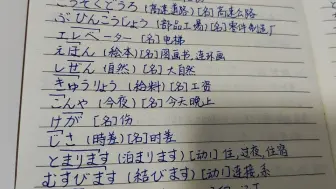 こうそくどうろ (高速道路) [名] 高速公路
ぶひんこうじょう (部品工場) [名] 零件制造厂
エレベーター [名] 电梯
えほん (絵本) [名] 图画书,连环画
しぜん (自然) [名] 大自然
きゅうりょう (給料) [名] 工资
こんや (今夜) [名] 今天晚上
けが [名] 伤
じさ (時差) [名] 时差
とまります (泊まります) [动1] 住,过夜,住宿
むすびます (結びます) [动1] 连接,系